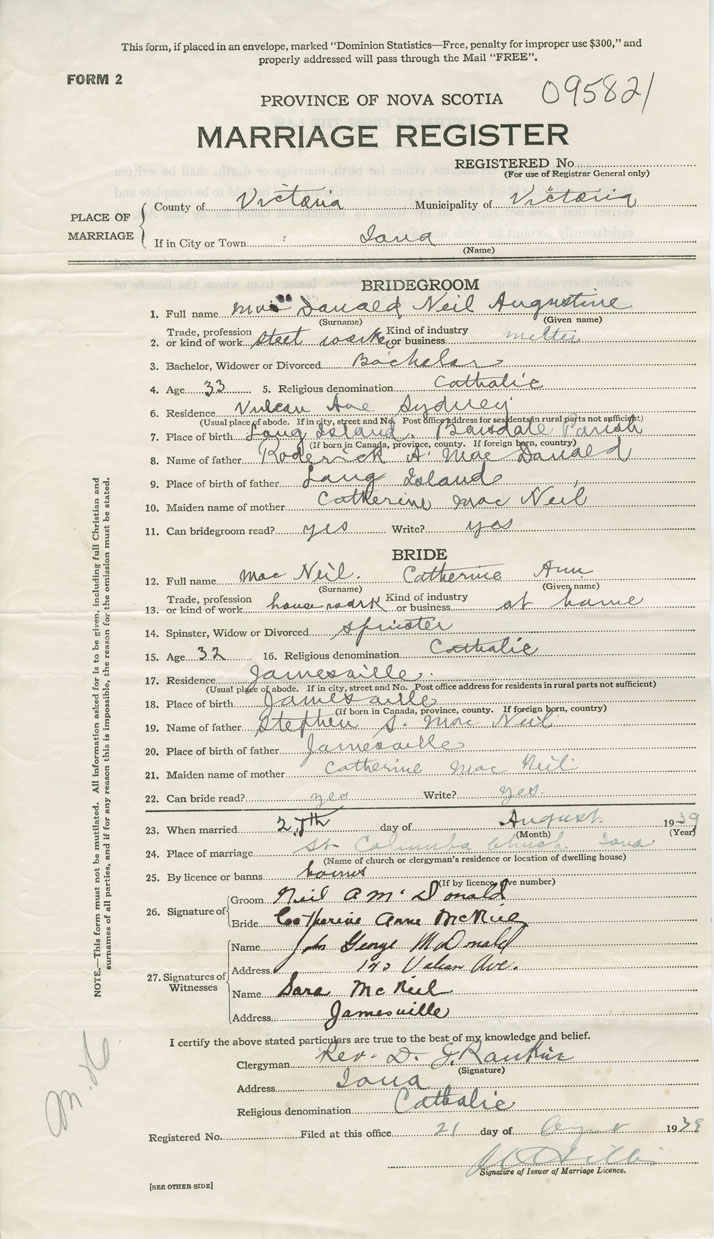 This form, if placed in an envelope, marked "Dominion Statistics—Free, penalty for improper use $300," and
properly addressed will pass through the Mail "FREE".
FORM 2
095821
PROVINCE OF NOVA SCOTIA
MARRIAGE REGISTER
REGISTERED No.
(For use of Registrar General only)
PLACE OF MARRIAGE
County of Victoria Municipality of Victoria
If in City or Town Iona
(Name)
BRIDEGROOM
1. Full name Mac Donald Neil Augustine
(Surname) (Given name)
2. Trade, profession or kind of work steel worker Kind of industry or business melter
3. Bachelor, Widower or Divorced Bachelor
4. Age 33 5. Religious denomination Catholic
6. Residence Vulcan Ave Sydney
(Usual place of abode. If in city, street and No. Post office address for residents in rural parts not sufficient)
7. Place of birth Long Island. Barsdale Parish
(If born in Canada, province, county. If foreign born, country)
8. Name of father Roderick A. Mac Donald
9. Place of birth of father Long Island
10. Maiden name of mother Catherine Mac Neil
11. Can bridegroom read? yes Write? yes
BRIDE
12. Full name Mac Neil. Catherine Ann
(Surname) (Given name)
13. Trade, profession or kind of work housework Kind of industry or business at home
14. Spinster, Widow or Divorced spinster
15. Age 32 16. Religious denomination Catholic
17. Residence Jamesville.
(Usual place of abode. If in city, street and No. Post office address for residents in rural parts not sufficient)
18. Place of birth Jamesville
(If born in Canada, province, county. If foreign born, country)
19. Name of father Stephen S. Mac Neil
20. Place of birth of father Jamesville
21. Maiden name of mother Catherine Mac Neil
22. Can bride read? yes Write? yes
23. When married day of August 1939
(Month) (Year)
24. Place of marriage St Columba Church Iona
(Name of church or clergyman's residence or location of dwelling house)
25. By licence or banns banns
(If by licence, give number)
26. Signature of
Groom Neil A McDonald
Bride Catherine Anne McNeil
27. Signatures of Witnesses
Name George McDonald
Address Vulcan Ave.
Name Sara McNeil
Address Jamesville
I certify the above stated particulars are true to the best of my knowledge and belief.
Clergyman Rev. D. J. Rankin
(Signature)
Address Iona
Religious denomination Catholic
Registered No. Filed at this office 21 day of 1939
Signature of Issuer of Marriage Licence.
[SEE OTHER SIDE]
NOTE.—This form must not be mutilated. All information asked for is to be given, including full Christian and
surnames of all parties, and if for any reason this is impossible, the reason for the omission must be stated.